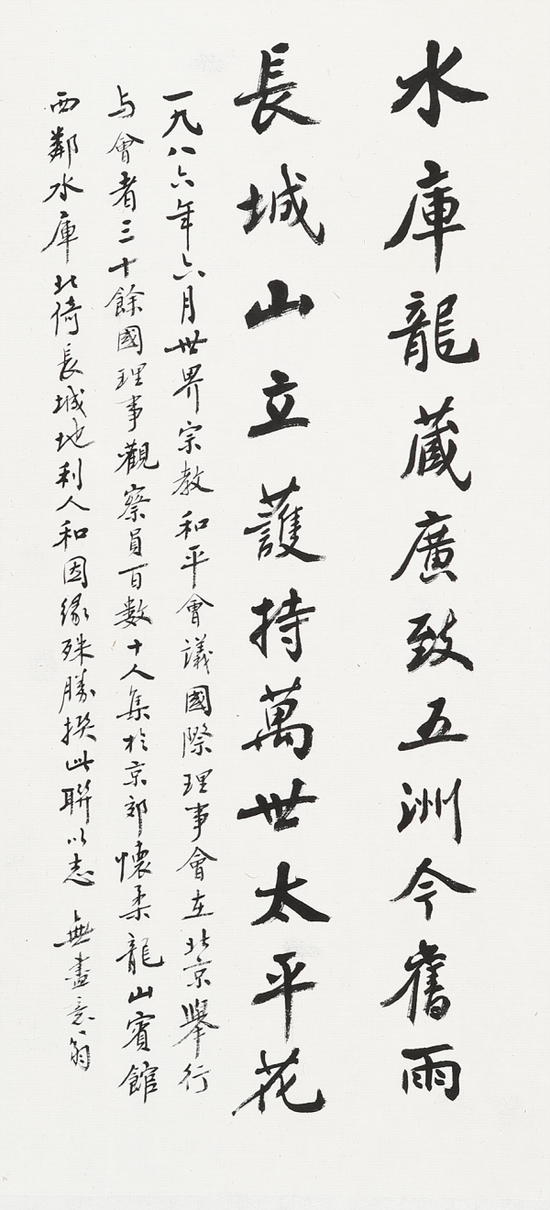 水庫龍藏廣致五洲今舊雨
長城山立護持萬世太平花
一九八六年六月世界宗教和平會議國際理事會在北京舉行
与會者三十餘國理事觀察員百數十人集於京郊懷柔龍山賓館
西鄰水庫北倚長城地利人和因緣殊勝撰此聯以志 無盡意翁